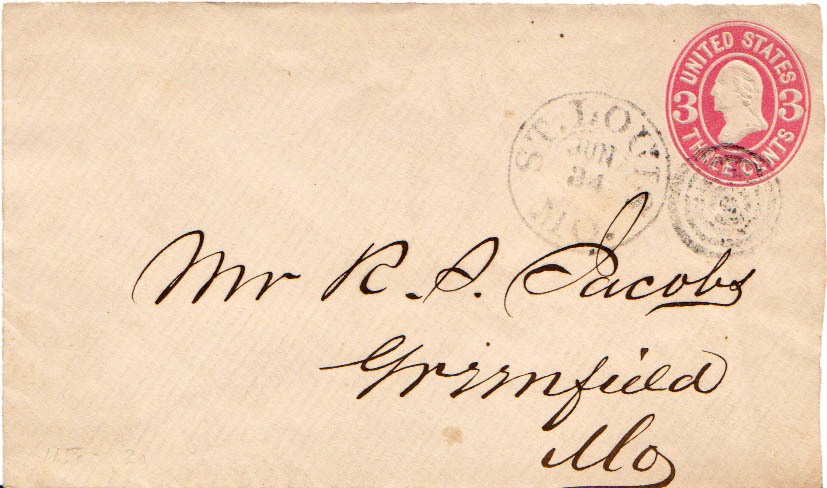 UNITED STATES
3 3
THREE CENTS
ST. LOUIS
JUN
24
MO.
Mr R. S. Jacobs
Greenfield
Mo